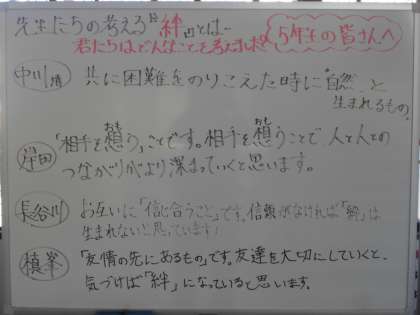 先生たちの考える"絆"とは…
君たちはどんなことを考えましたか?
5年生の皆さんへ
中川 共に困難をのりこえた時に"自然"と
生まれるもの。
岸田 「相手を想う」ことです。相手を想うことで人と人との
つながりがより深まっていくと思います。
長谷川 お互いに「信じ合うこと」です。信頼がなければ「絆」は
生まれないと思っています!
槙峯 「友情の先にあるもの」です。友達を大切にしていくと、
気づけば「絆」になっていると思います。